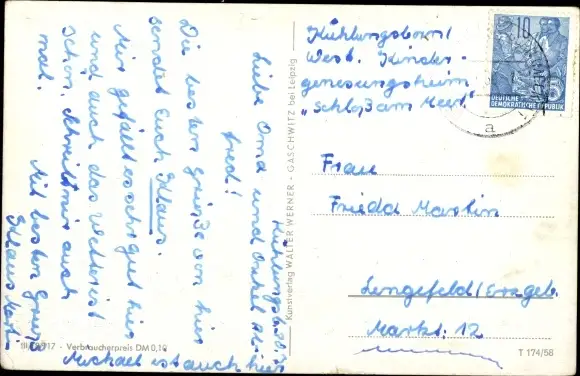 Kühlungsborn/
West. Kinder-
genesungsheim
"Schloß am Meer."
10
DEUTSCHE
DEMOKRATISCHE REPUBLIK
a
Frau
Frieda Martin
Lengefeld/Erzgeb.
Markt. 12
T 174/58
Kunstverlag WALTER WERNER - GASCHWITZ bei Leipzig
Kühlungsb.
Liebe Oma und Onkel
fred!
Die besten Grüße von hier
sendet Euch Klaus.
Mir gefällt es sehr gut hier
und auch das Wetter ist
schön, schreibt mir auch
mal.
Mit besten Grüß
Klaus
Michael ist auch hier
Verbraucherpreis DM 0,10